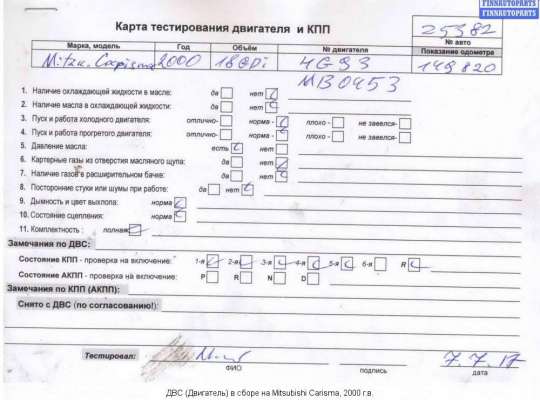 FINNAUTOPARTS
FINNAUTOPARTS
Карта тестирования двигателя и КПП
25382
№ авто
Марка, модель Год Объём № двигателя Показание одометра
Mitsu. Carisma 2000 18 GDi 4G93 149820
MB0453
1. Наличие охлаждающей жидкости в масле: да нет
2. Наличие масла в охлаждающей жидкости: да нет
3. Пуск и работа холодного двигателя: отлично- норма - плохо - не завелся-
4. Пуск и работа прогретого двигателя: отлично- норма - плохо - не завелся-
5. Давление масла: есть нет
6. Картерные газы из отверстия масляного щупа: да нет
7. Наличие газов в расширительном бачке: да нет
8. Посторонние стуки или шумы при работе: да нет
9. Дымность и цвет выхлопа: норма
10. Состояние сцепления: норма
11. Комплектность : полная
Замечания по ДВС:
Состояние КПП - проверка на включение: 1-я 2-я 3-я 4-я 5-я 6-я R
Состояние АКПП - проверка на включение: P R N D
Замечания по КПП (АКПП):
Снято с ДВС (по согласованию!):
Тестировал: 7.7.17
ФИО подпись дата
ДВС (Двигатель) в сборе на Mitsubishi Carisma, 2000 г.в.